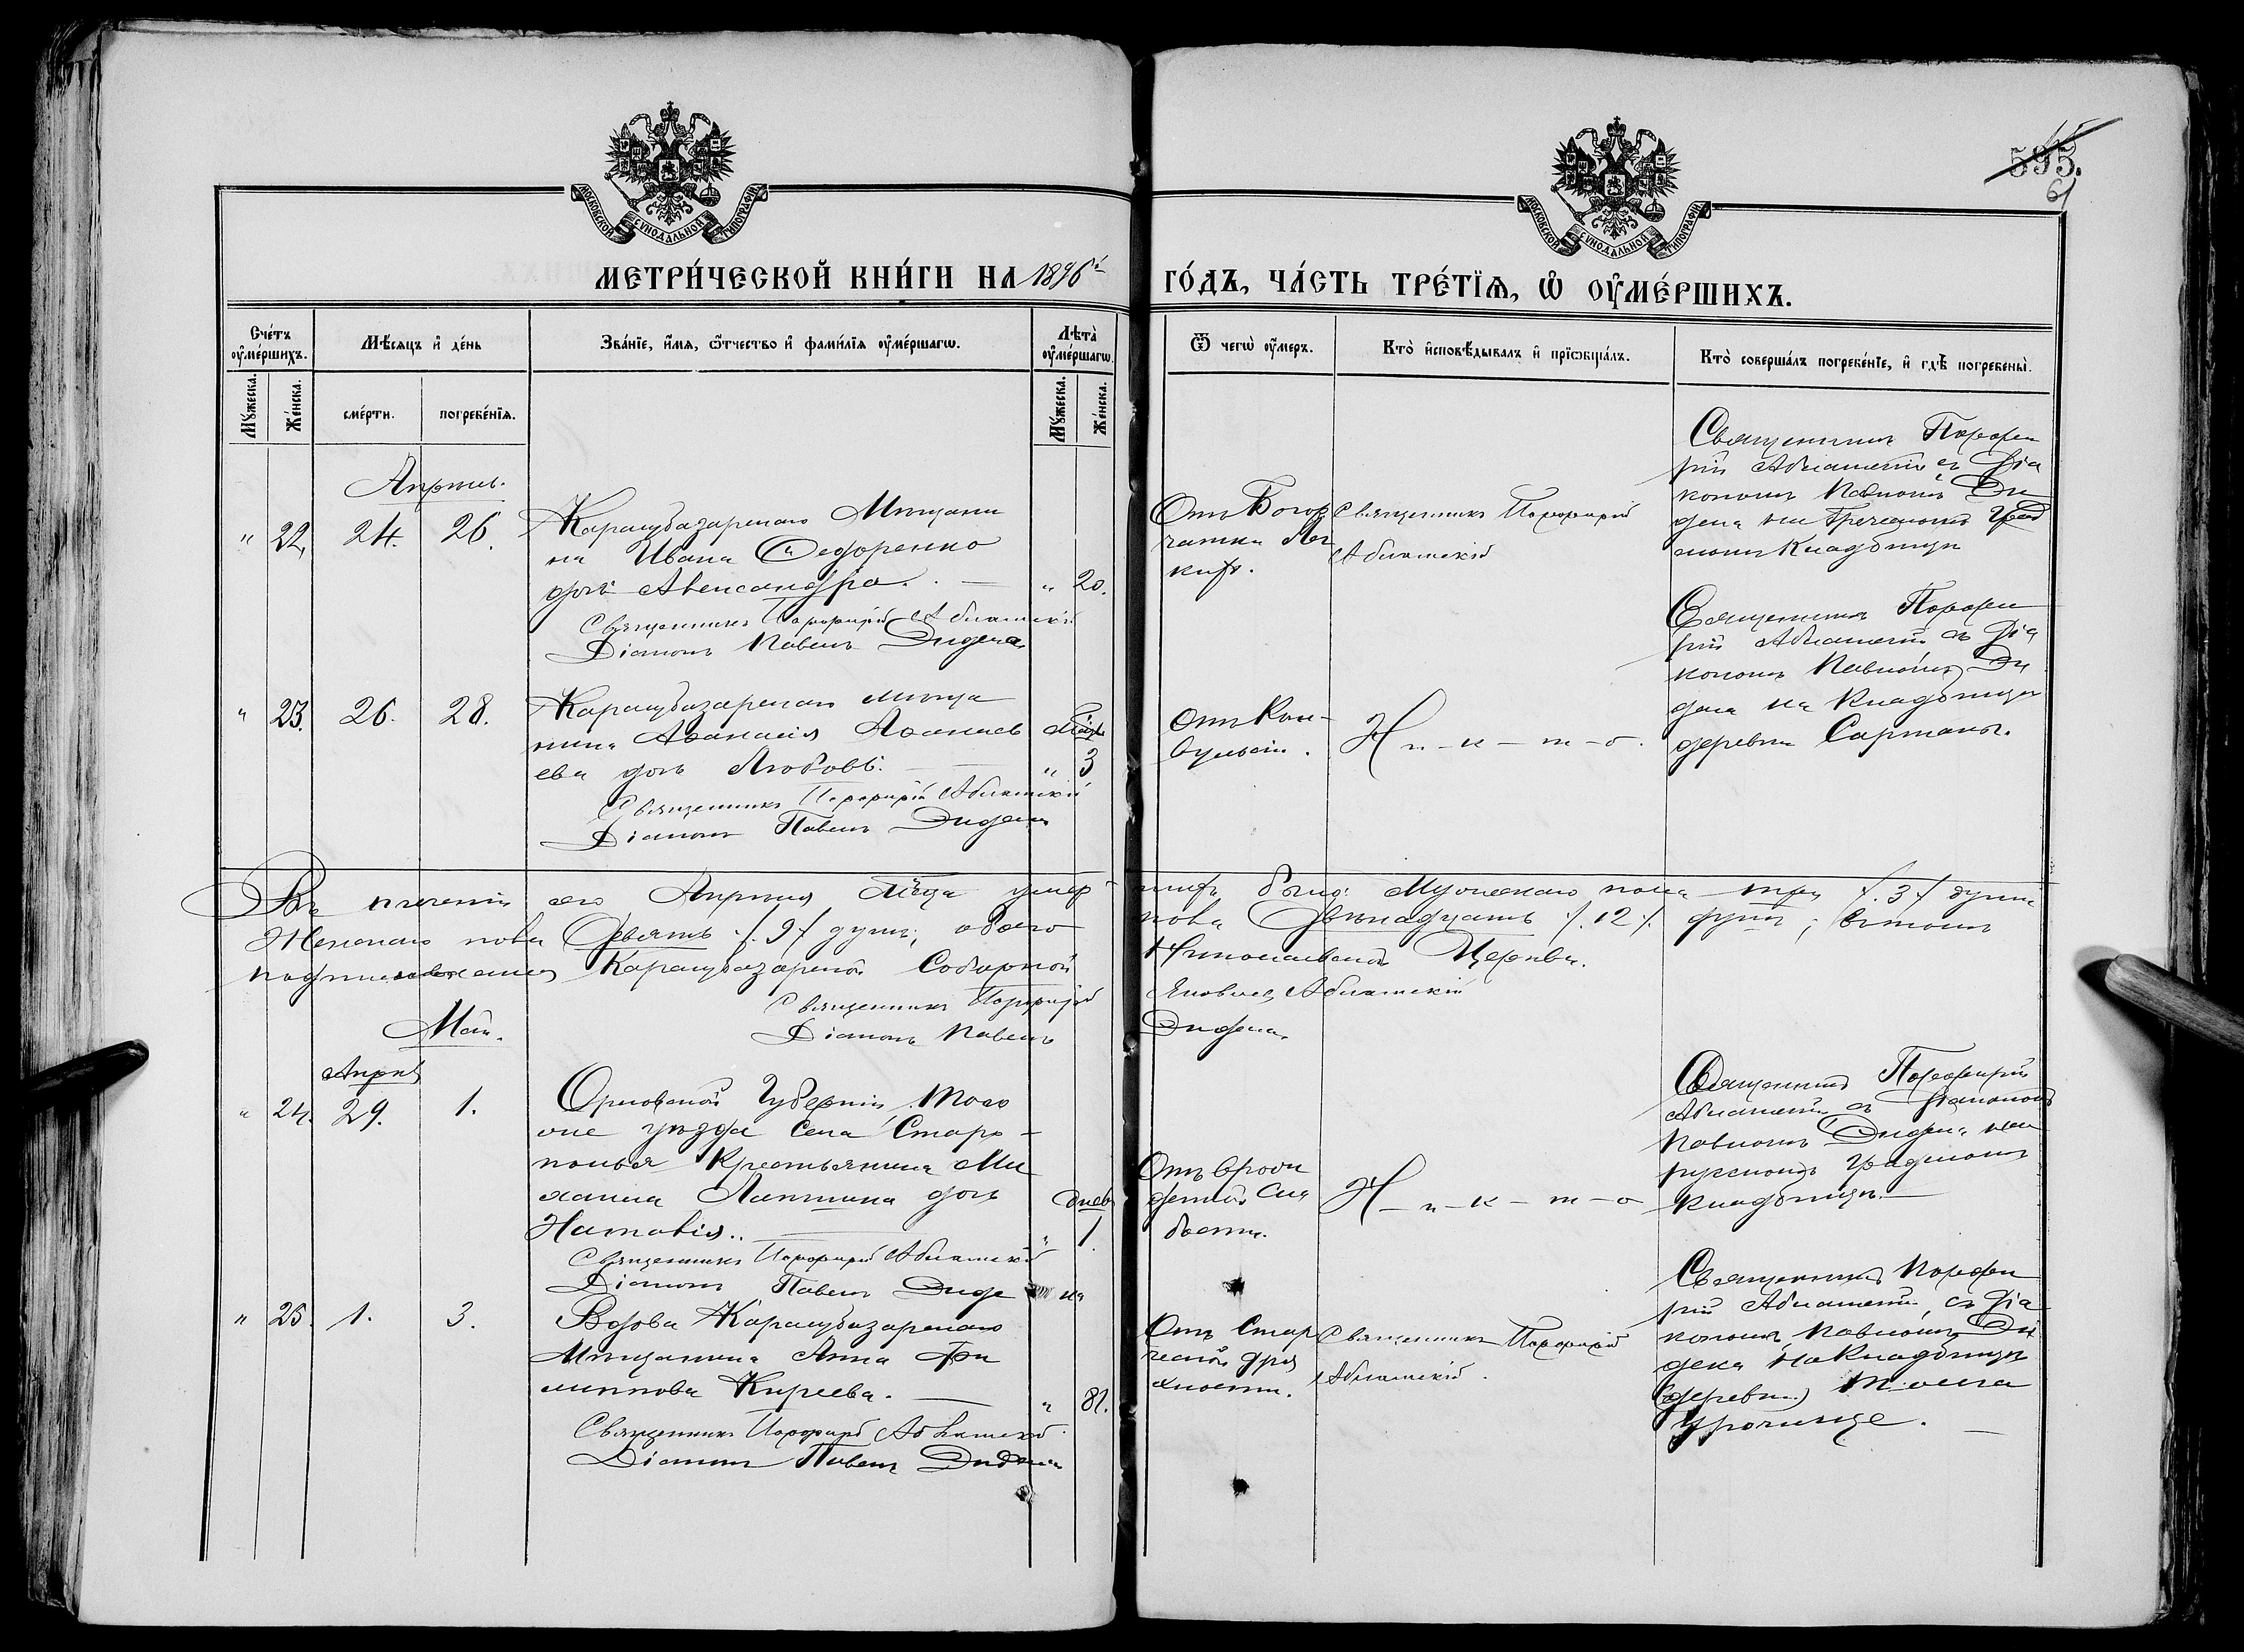 595.
61
МОСКОВСКОЙ СѴНОДАЛЬНОЙ ТИПОГРАФІИ
МОСКОВСКОЙ СѴНОДАЛЬНОЙ ТИПОГРАФІИ
МЕТРИ́ЧЕСКОЙ КНИ́ГИ НА 1896й
ГО́ДЪ, ЧА́СТЬ ТРЕ́ТЇѦ, Ѡ҆ ОУ҆МЕ́РШИХЪ.
Счетъ оу҆ме́ршихъ.
Мѣ́сяцъ и҆ де́нь
Зва́нїе, и҆́мѧ, ѻ҆́тчество и҆ фами́лїѧ оу҆ме́ршагѡ.
Лѣта̀ оу҆ме́ршагѡ.
Мꙋ́жеска.
Же́нска.
сме́рти.
погребе́нїѧ.
Мꙋ́жеска.
Же́нска.
Ѿ чегѡ̀ оу҆́меръ.
Кто̀ и҆сповѣ́дывалъ и҆ прїѡбща́лъ.
Кто̀ соверша́лъ погребе́нїе, и҆ гдѣ̀ погребены̀.
Апрѣль.
" 22. 24. 26.
Карасубазарскаго Мѣщани
на Ивана Сидоренко
дочь Александра. —
" 20.
Священникъ Порфирій Абламскій
Діаконъ Павелъ Дидена
Отъ Бугор
чатки Лег
кихъ.
Священникъ Порфирій
Абламскій
Священникъ Порфи
рій Абламскій съ Діа
кономъ Павломъ Ди
дена на Греческомъ Град
скомъ Кладбищѣ
" 23. 26. 28.
Карасубазарскаго мѣща
нина Аѳанасія Аѳанась
ева дочь Любовь. —
Мѣсяц
" 3
Священникъ Порфирій Абламскій
Діаконъ Павелъ Дидена
Отъ Кон-
вульсіи.
Н-и-к-т-о.
Священникъ Порфи
рій Абламскій съ Діа
кономъ Павломъ Ди
дена на Кладбищѣ
деревни Сартаны.
Въ теченіи сего Апрѣля Мѣсца умер-
шихъ было: Мужескаго пола три /.3./ души
Женскаго пола Девять /.9./ душъ, обоего
пола Двѣнадцать /.12./ душъ; въ томъ
подписываемся Карасубазарской Соборной
Николаевской Церкви.
Священникъ Порфирій
Яковлев Абламскій
Діаконъ Павелъ
Дидена
Май.
Апрѣл
" 24. 29. 1.
Орловской Губерніи того
же уѣзда села Старо-
полья Крестьянина Ми
хаила Лапшина дочь
Наталія. —
дней
" 1.
Священникъ Порфирій Абламскій
Діаконъ Павелъ Диде на
Отъ врож
денной Сла
бости.
Н-и-к-т-о
Священникъ Порфирій
Абламскій съ Діакономъ
Павломъ Дидена на
русскомъ градскомъ
кладбищѣ. —
" 25. 1. 3.
Вдова Карасубазарскаго
Мѣщанина Анна Фи
липпова Киреева. —
" 81.
Священникъ Порфирій Абламскій
Діаконъ Павелъ Дидена
Отъ Стар
ческой дря
хлости.
Священникъ Порфирій
Абламскій.
Священникъ Порфи
рій Абламскій, съ Діа
кономъ Павломъ Ди
дена на Кладбищѣ
деревни
Урочище. —